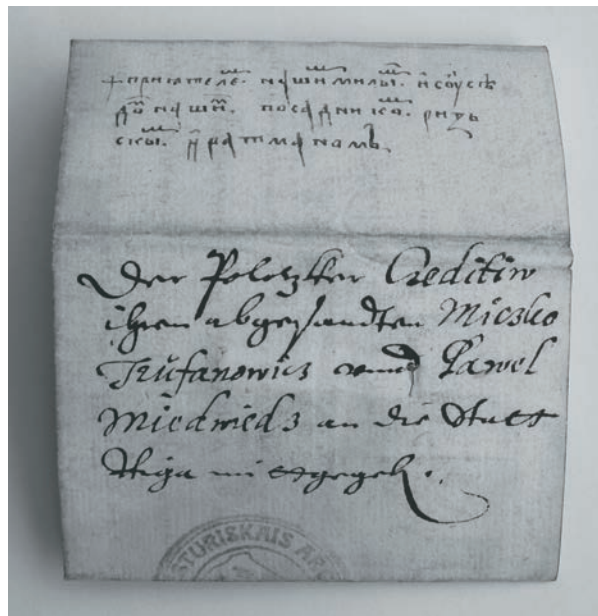 + приıателеⷨ. нашиⷨ милыⷨ. и соусѣ
доⷨ нашиⷨ. посадникоⷨ. ризь
скыⷨ. и ратманамъ
Der Polotzker Creditiw
ihren abgesandten Miczko
Trufanowicz vnnd Pawel
Miedwiedz an die Statt
Riga mitgegeb.
STURISKAIS AR